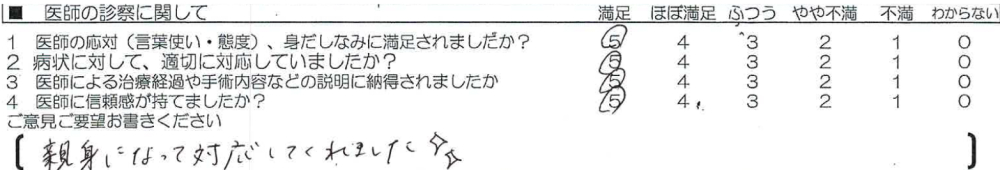 ■ 医師の診察に関して 満足 ほぼ満足 ふつう やや不満 不満 わからない
1 医師の応対（言葉使い・態度）、身だしなみに満足されましたか？ 5 4 3 2 1 0
2 病状に対して、適切に対応していましたか？ 5 4 3 2 1 0
3 医師による治療経過や手術内容などの説明に納得されましたか 5 4 3 2 1 0
4 医師に信頼感が持てましたか？ 5 4 3 2 1 0
ご意見ご要望お書きください
【 親身になって対応してくれました 】